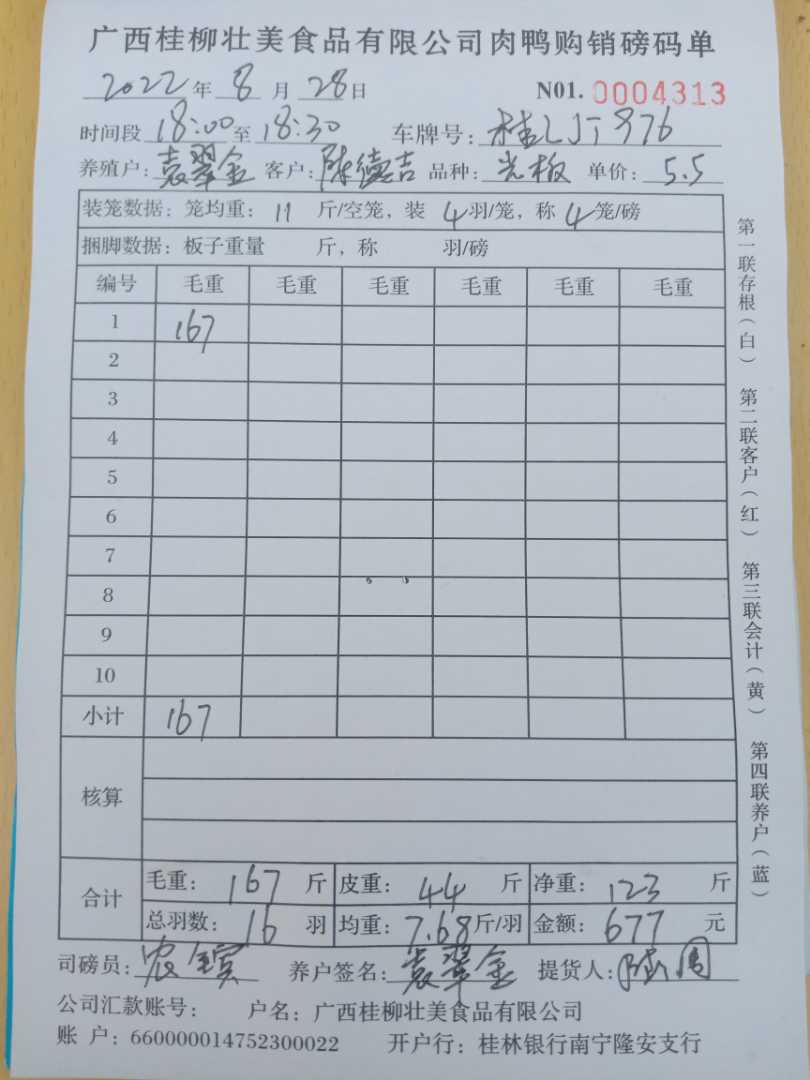 广西桂柳壮美食品有限公司肉鸭购销磅码单
2022年 8 月 28日 N01. 0004313
时间段 18:00至 18:30 车牌号: 桂LJT976
养殖户: 袁翠金 客户: 陈德吉 品种: 光板 单价: 5.5
装笼数据: 笼均重: 11 斤/空笼, 装 4羽/笼, 称 4笼/磅
捆脚数据: 板子重量 斤, 称 羽/磅
编号 毛重 毛重 毛重 毛重 毛重 毛重
1 167
2
3
4
5
6
7
8
9
10
小计 167
核算
合计 毛重: 167 斤 皮重: 44 斤 净重: 123 斤
总羽数: 16 羽 均重: 7.68斤/羽 金额: 677 元
司磅员: 农 养户签名: 袁翠金 提货人:
公司汇款账号: 户名: 广西桂柳壮美食品有限公司
账 户: 660000014752300022 开户行: 桂林银行南宁隆安支行
第一联存根(白) 第二联客户(红) 第三联会计(黄) 第四联养户(蓝)